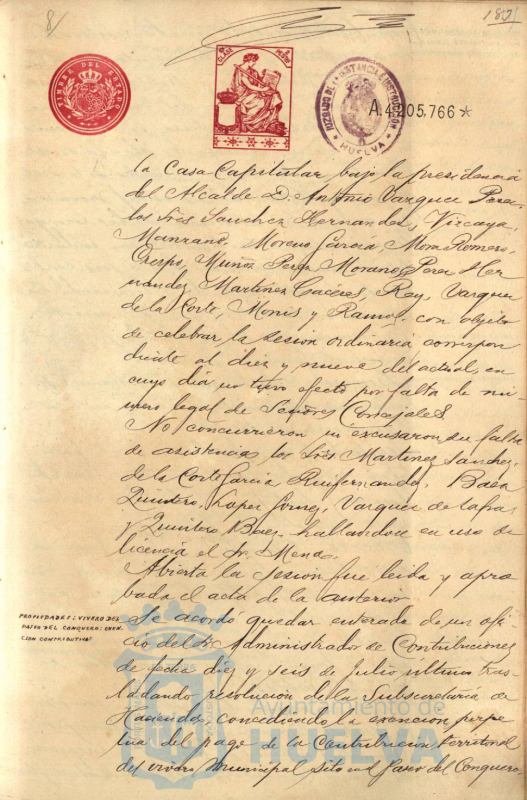 8/
187
TIMBRE DEL ESTADO
CLASE
JUZGADO DE 1ª INSTANCIA E INSTRUCCION
HUELVA
A.4.205.766*
la Casa Capitular bajo la presidencia
del Alcalde D. Antonio Vazquez Perez
los Sres Sanchez Hernandez, Vizcaya,
Manzano, Moreno Garcia, Mora Romero,
Crespo, Muñoz Perez, Morano, Perez Her
nandez, Martinez Caceres, Rey, Vazquez
de la Corte, Monis y Ramos, con objeto
de celebrar la sesion ordinaria correspon
diente al diez y nueve del actual en
cuyo dia no tuvo efecto por falta de nú
mero legal de Señores Concejales
No concurrieron ni excusaron su falta
de asistencia los Sres Martinez Sanchez,
de la Corte, Garcia Ruifernandez, Baez
Quintero, Lopez Gomez, Vazquez de
y Quintero Baez, hallandose en uso de
licencia el Sr. Mena.
Abierta la sesion fue leida y apro
bada el acta de la anterior
PROPIEDADES; VIVERO DEL
PASEO DEL CONQUERO: EXEN
CION CONTRIBUTIVA
Se acordó quedar enterado de un ofi
cio del Sr Administrador de Contribuciones
de fecha diez y seis de Julio ultimo tras
ladando resolucion de la Subsecretaria de
Hacienda, concediendo la exencion perpe
tua del pago de la Contribucion territorial
del vivero municipal sito en el Paseo del Conquero
Ayuntamiento de
HUELVA